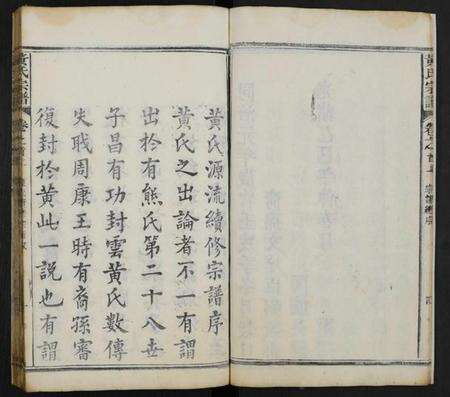 黃氏宗譜
黃氏源流續修宗譜序
黃氏之出論者不一有謂
出於有熊氏第二十八世
子昌有功封雲黃氏數傳
失職周康王時有裔孫審
復封於黃此一說也有謂
黃氏宗譜